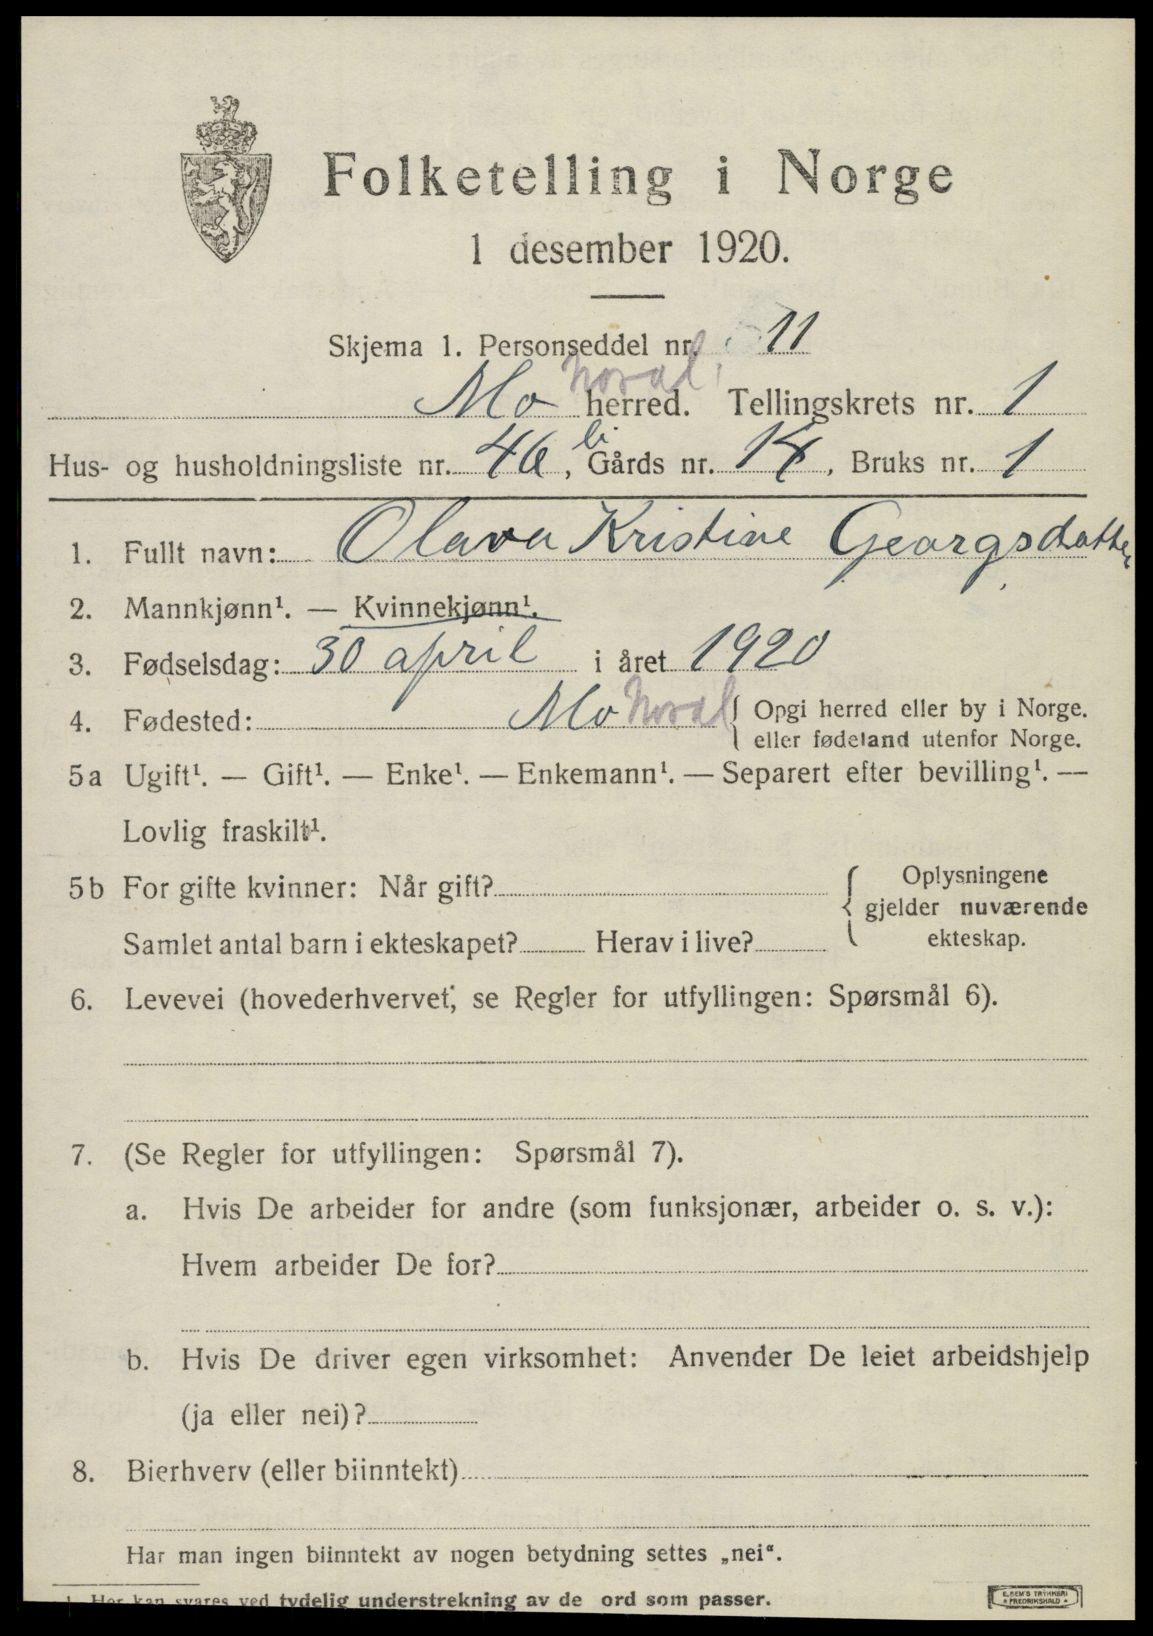 Folketelling i Norge
1 desember 1920.
Skjema 1. Personseddel nr. 11
Mo herred. Nordl. Tellingskrets nr. 1
Hus- og husholdningsliste nr. 46, bi Gårds nr. 14, Bruks nr. 1
1. Fullt navn: Olava Kristine Georgsdatter
2. Mannkjønn¹. — Kvinnekjønn¹.
3. Fødselsdag: 30 april i året 1920
4. Fødested: Mo Nordl { Opgi herred eller by i Norge.
eller fødeland utenfor Norge.
5a Ugift¹. — Gift¹. — Enke¹. — Enkemann¹. — Separert efter bevilling¹. —
Lovlig fraskilt¹.
5b For gifte kvinner: Når gift?
Samlet antal barn i ekteskapet? Herav i live?
{ Oplysningene
gjelder nuværende
ekteskap.
6. Levevei (hovederhvervet, se Regler for utfyllingen: Spørsmål 6).
7. (Se Regler for utfyllingen: Spørsmål 7).
a. Hvis De arbeider for andre (som funksjonær, arbeider o. s. v.):
Hvem arbeider De for?
b. Hvis De driver egen virksomhet: Anvender De leiet arbeidshjelp
(ja eller nei)?
8. Bierhverv (eller biinntekt)
Har man ingen biinntekt av nogen betydning settes „nei“.
1 Her kan svares ved tydelig understrekning av de ord som passer.
E. SEM'S TRYKKERI
FREDRIKSHALD